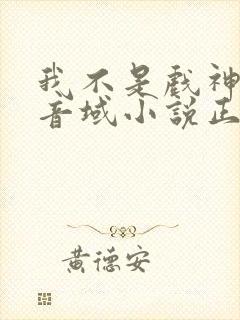 我不是戲神
音域小說正
黃德安